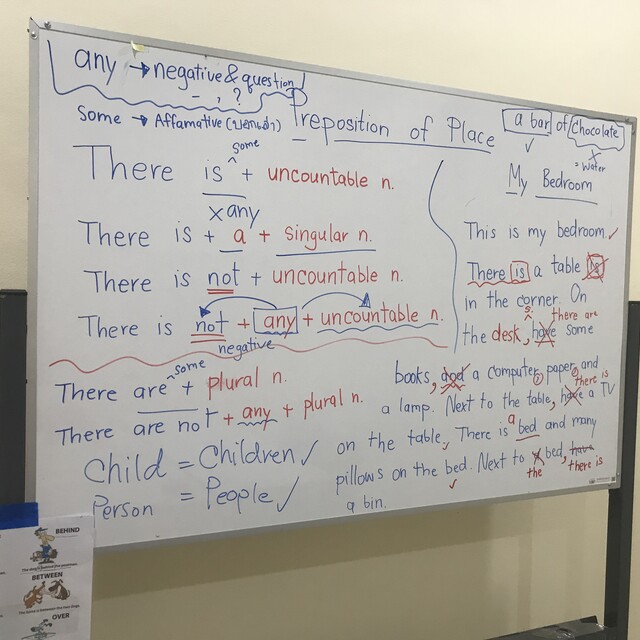 any → negative & question
- , ?
Some → Affamative (บอกเล่า)
Preposition of Place
a bar of Chocolate
✓ x
= Water
some
There is ^ + uncountable n.
x any
There is + a + singular n.
There is not + uncountable n.
There is not + any + uncountable n.
negative
some
There are ^ + plural n.
There are not + any + plural n.
Child = Children ✓
Person = People ✓
My Bedroom
This is my bedroom. ✓
There is a table is
in the corner. On
s. there are
the desk, have some
books, and a computer, paper, and
there is
a lamp. Next to the table, have a TV
on the table, There is a bed and many
pillows on the bed. Next to the bed, have there is
a bin.
BEHIND
BETWEEN
OVER